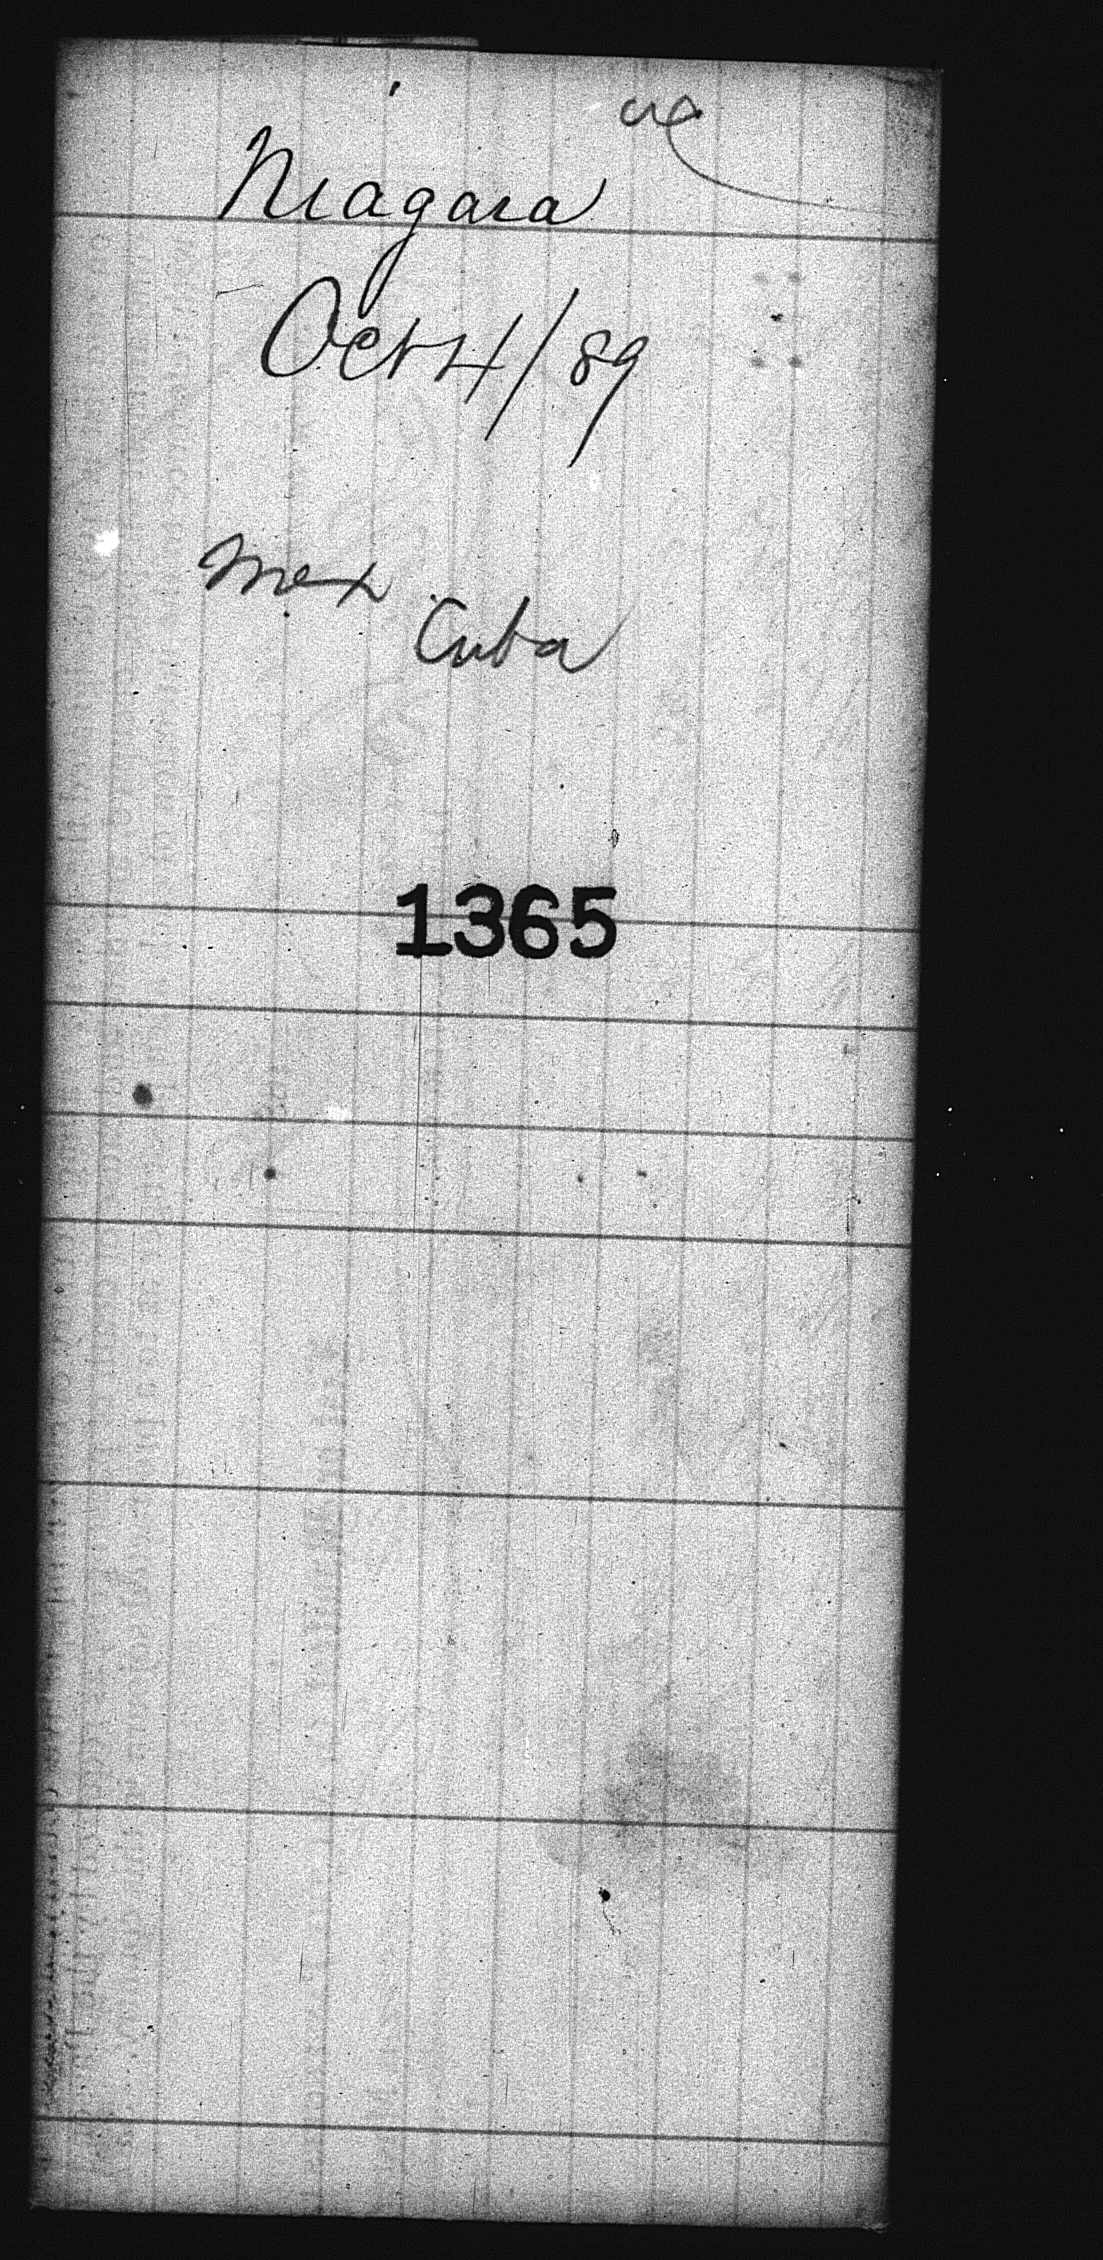 Niagara
Oct 4/89
Mex
Cuba
1365